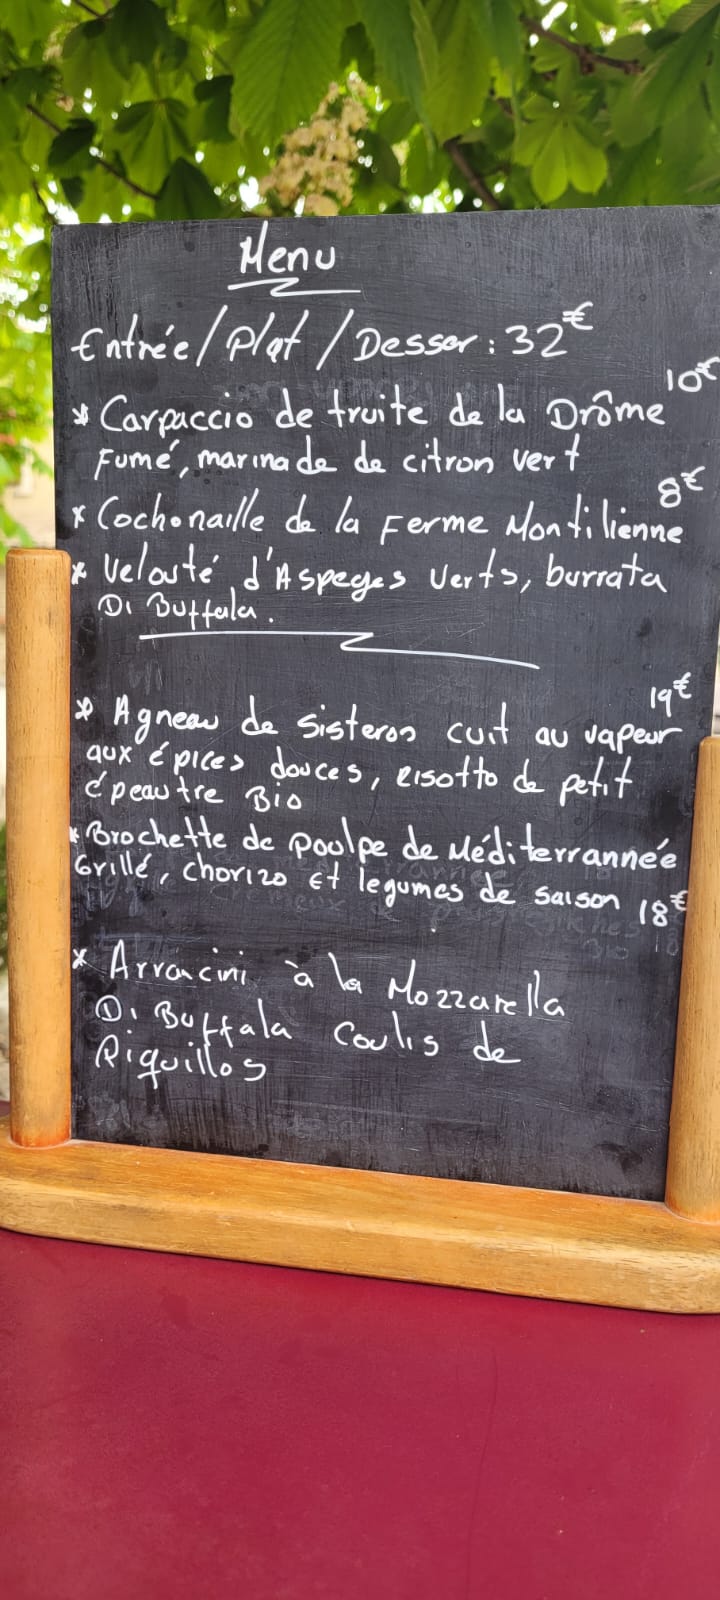 Menu
Entrée/Plat/Desser: 32€
10€
* Carpaccio de truite de la Drôme
Fumé, marinade de citron vert
8€
* Cochonaille de la Ferme Montilienne
* Velouté d'Aspeges verts, burrata
Di Buffala.
19€
* Agneau de Sisteron cuit au vapeur
aux épices douces, risotto de petit
épeautre Bio
* Brochette de Poulpe de Méditerrannée
Grillé, chorizo et legumes de saison 18€
* Arrancini à la Mozzarella
Di Buffala Coulis de
Piquillos